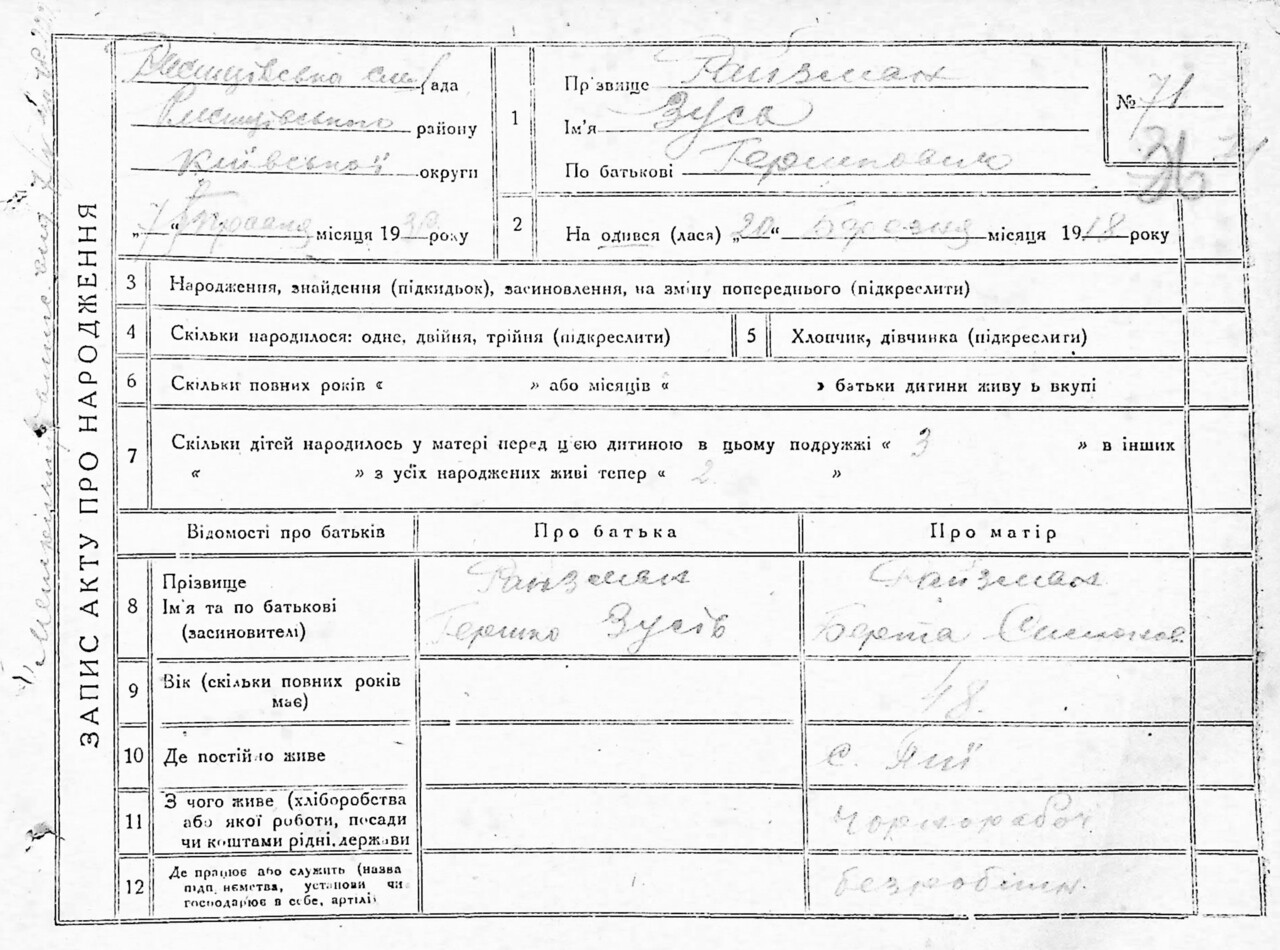 ЗАПИС АКТУ ПРО НАРОДЖЕННЯ
рада
району
Київської округи
„7“ місяця 1930 року
1
Прізвище Райзман
Ім'я Зусь
По батькові Гершкович
№ 71
2
На одився (лася) „20“ Березня місяця 1918 року
3 Народження, знайдення (підкидьок), засиновлення, на зміну попереднього (підкреслити)
4 Скільки народилося: одне, двійня, трійня (підкреслити)
5 Хлопчик, дівчинка (підкреслити)
6 Скільки повних років « » або місяців « » батьки дитини живу ь вкупі
7 Скільки дітей народилось у матері перед цією дитиною в цьому подружжі « 3 » в інших
« » з усіх народжених живі тепер « 2 »
Відомості про батьків Про батька Про матір
8 Прізвище Райзман Райзман
Ім'я та по батькові Гершко Зусів Берта
(засиновителі)
9 Вік (скільки повних років має) 48.
10 Де постійно живе с.
11 З чого живе (хліборобства
або якої роботи, посади
чи коштами рідні, держави чорнороб
12 Де працює або служить (назва
підп нємства, установи чи
господарює в себе, артілі) безробітн.